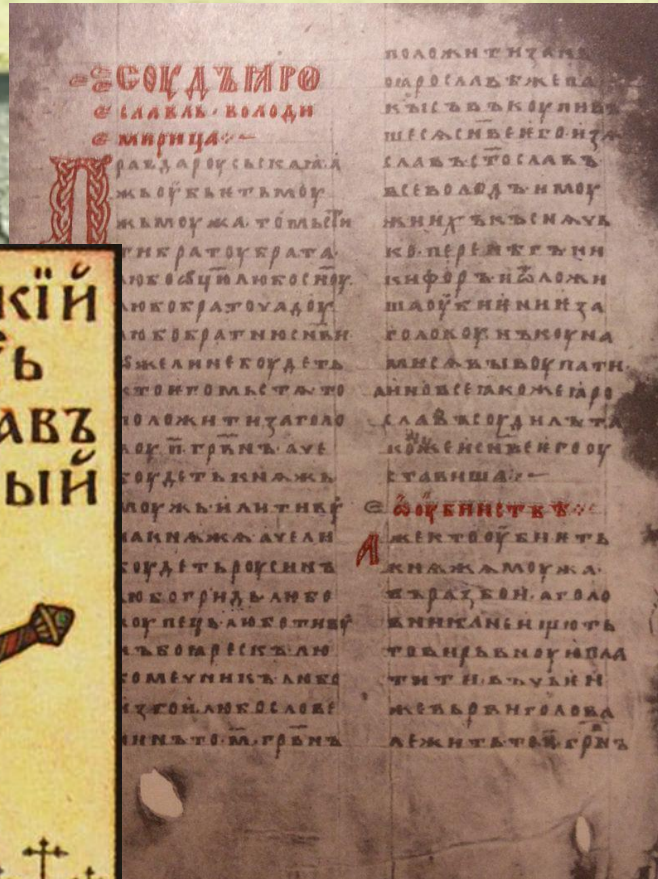 СОУДЪ ꙖРО
СЛАВЛЬ · ВОЛОДИ
МИРИЦА
Правдароусьскаꙗ · а
жьоубьѥтьмоу
жьмоужа · томьсти
тибратоубрата ·
любоѡц҃юлюбосн҃оу ·
любобратоучадоу
любобратнюсн҃ви
ожелинебоудеть
ктоѥгомьстѧто
положитизаголо
воу · п҃ · грв҃нъ · аче
боудетькнѧжь
моужьилитиву
накнѧжа · ачели
боудетьроусинъ
любогридьлюбо
коупець · люботиву
нъбоꙗрескълю
бомечникълюбо
изгоилюбослове
нинъто · м҃ · грв҃нъ
положитизань
поꙗрославѣжепа
кысъвъкоупивъ
шесѧсн҃веѥго · изѧ
славъст҃ославъ
всеволодъимоу
жиихъкъснѧчь
ко · перенѣгъни
кифоръиѿложи
шаоубиѥниѥза
головоу нъкоуна
мисѧвыкоупати ·
аиновсеꙗкожеꙗро
славъсоудилъта
кожеисн҃веѥгооу
ставиша
ѡоубииствѣ
Ажектооубиѥть
кнѧжамоужа ·
въразбои · аголо
вниканеищють
товирьвноуюпла
тити · въчьѥи
жевьрвиголова
лежитьто п҃ грв҃нъ
кїй
ь
авъ
ый